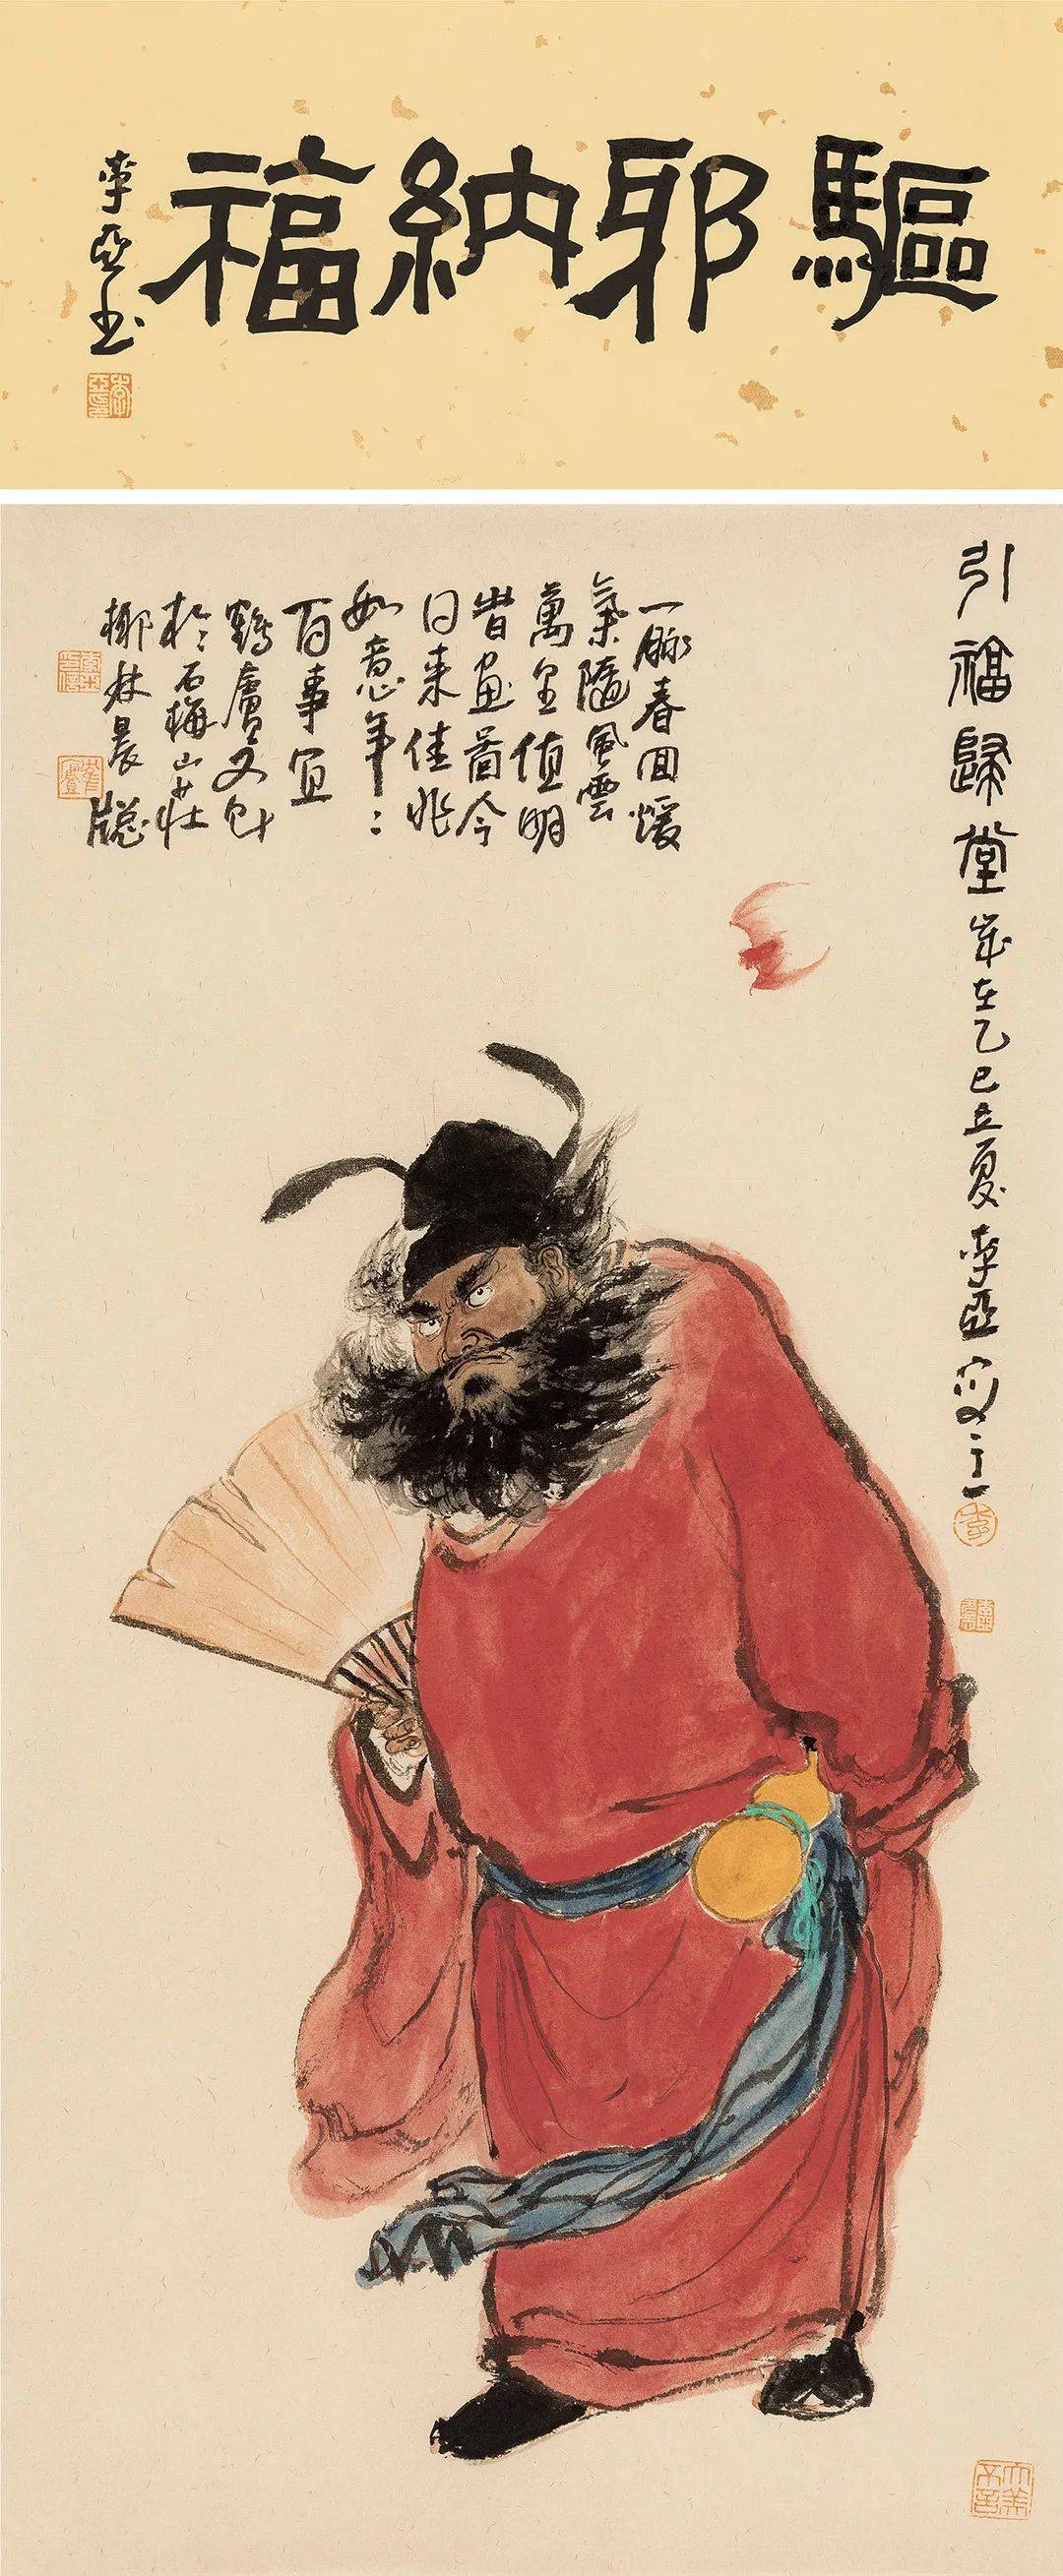 驅邪納福
李亞書
引福歸堂 歲在乙巳立夏 李亞寫之
一脈春回煖
氣隨風雲
萬里值明
昔畫图今
日来佳兆
如意年〻
百事宜
鶴廬又
於石梅山莊
椰林晨牕